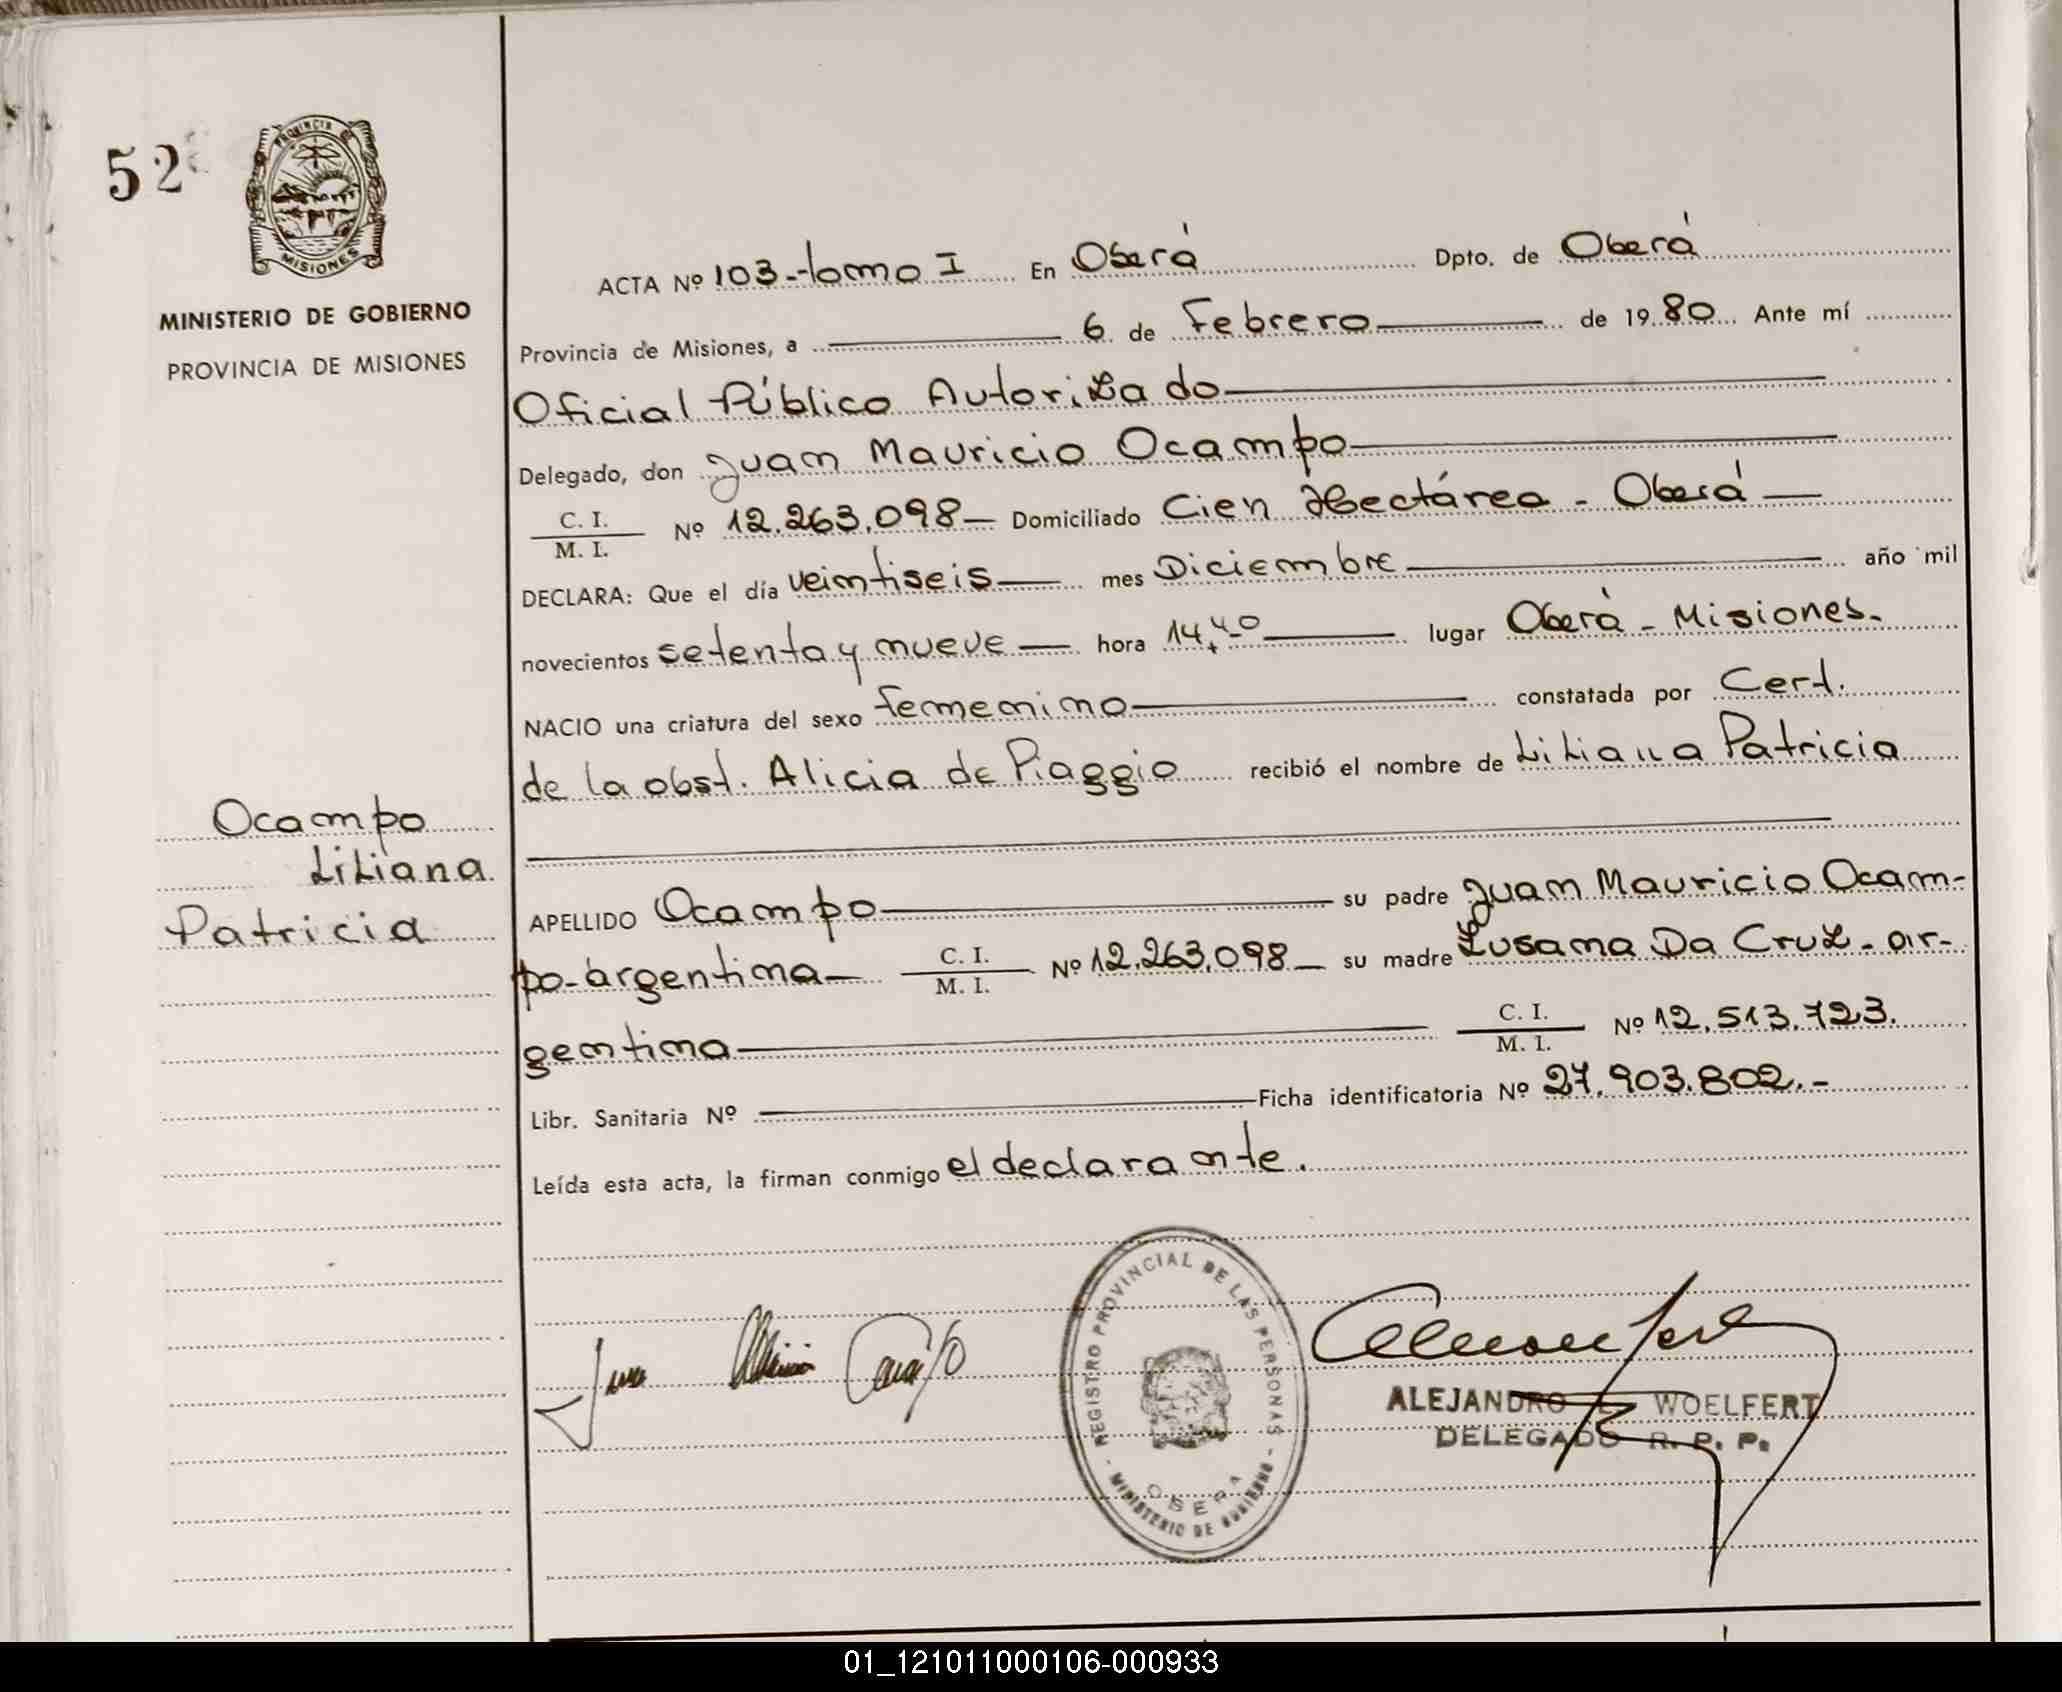 52
PROVINCIA DE
MISIONES
MINISTERIO DE GOBIERNO
PROVINCIA DE MISIONES
ACTA Nº 103-tomo I En Oberá Dpto. de Oberá
Provincia de Misiones, a 6 de Febrero de 1980 Ante mí
Oficial Público Autorizado
Delegado, don Juan Mauricio Ocampo
C. I.
M. I. Nº 12.263.098 Domiciliado Cien Hectárea - Oberá
DECLARA: Que el día veintiseis mes Diciembre año mil
novecientos setenta y nueve hora 14,40 lugar Oberá - Misiones.
NACIO una criatura del sexo femenino constatada por Cert.
de la obst. Alicia de Piaggio recibió el nombre de Liliana Patricia
Ocampo
Liliana
Patricia
APELLIDO Ocampo su padre Juan Mauricio Ocam-
po-argentina C. I.
M. I. Nº 12.263.098 su madre Zusana Da Cruz - ar-
gentina C. I.
M. I. Nº 12.513.723.
Libr. Sanitaria Nº Ficha identificatoria Nº 27.903.802.-
Leída esta acta, la firman conmigo el declarante.
REGISTRO PROVINCIAL DE LAS PERSONAS
- MINISTERIO DE GOBIERNO -
OBERA
ALEJANDRO E. WOELFERT
DELEGADO R. P. P.
01_121011000106-000933